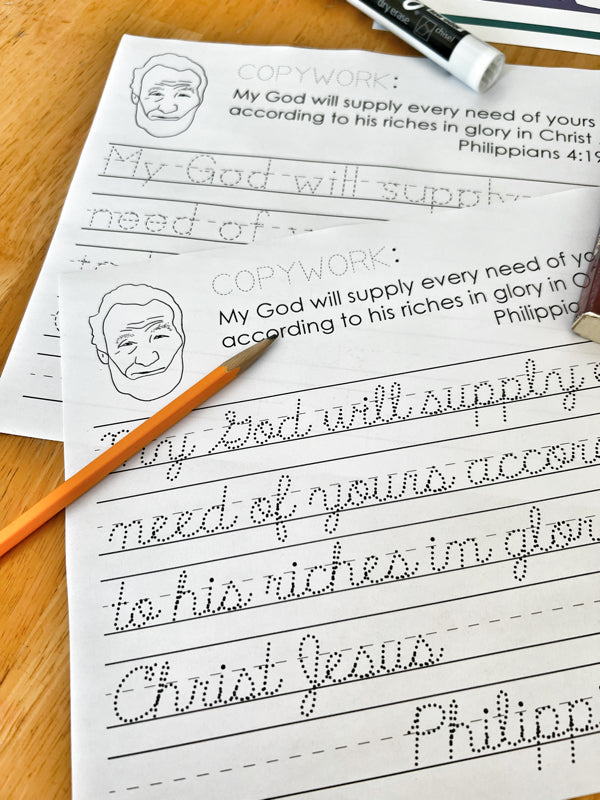 dry erase
chisel
COPYWORK:
My God will supply every need of yours
according to his riches in glory in Christ
Philippians 4:19
My God will supply
need of
COPYWORK:
My God will supply every need of
according to his riches in glory in
My God will supply
need of yours
to his riches in
Christ Jesus